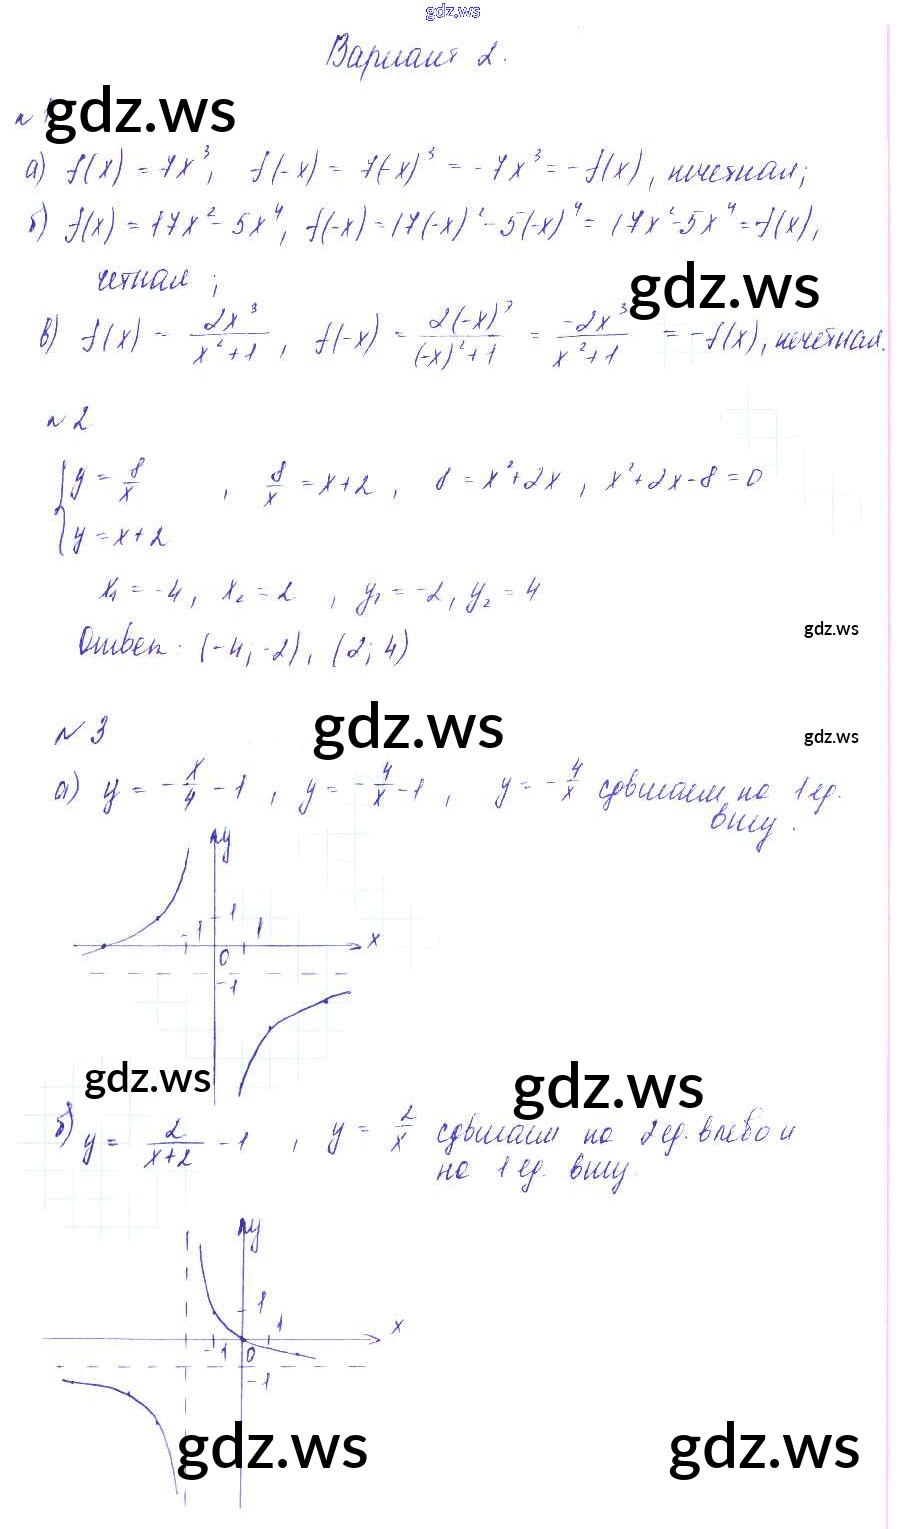 gdz.ws
Вариант 2.
gdz.ws
№ 1
а) f(x) = 7x³, f(-x) = 7(-x)³ = -7x³ = -f(x), нечетная;
б) f(x) = 17x² - 5x⁴, f(-x) = 17(-x)² - 5(-x)⁴ = 17x² - 5x⁴ = f(x),
четная ;
gdz.ws
в) f(x) = 2x³/(x²+1), f(-x) = 2(-x)³/((-x)²+1) = -2x³/(x²+1) = -f(x), нечетная.
№ 2
{ y = 8/x , 8/x = x+2 , 8 = x²+2x , x²+2x-8 = 0
y = x+2
x₁ = -4, x₂ = 2 , y₁ = -2, y₂ = 4
gdz.ws
Ответ: (-4; -2), (2; 4)
gdz.ws
№ 3
gdz.ws
а) y = -x/4 - 1 , y = -4/x - 1 , y = -4/x сдвигаем на 1 ед.
вниз.
y
1
-1 1 x
0
-1
gdz.ws
gdz.ws
б) y = 2/(x+2) - 1 , y = 2/x сдвигаем на 2 ед. влево и
на 1 ед. вниз.
y
1
1 x
-1 0
-1
gdz.ws
gdz.ws